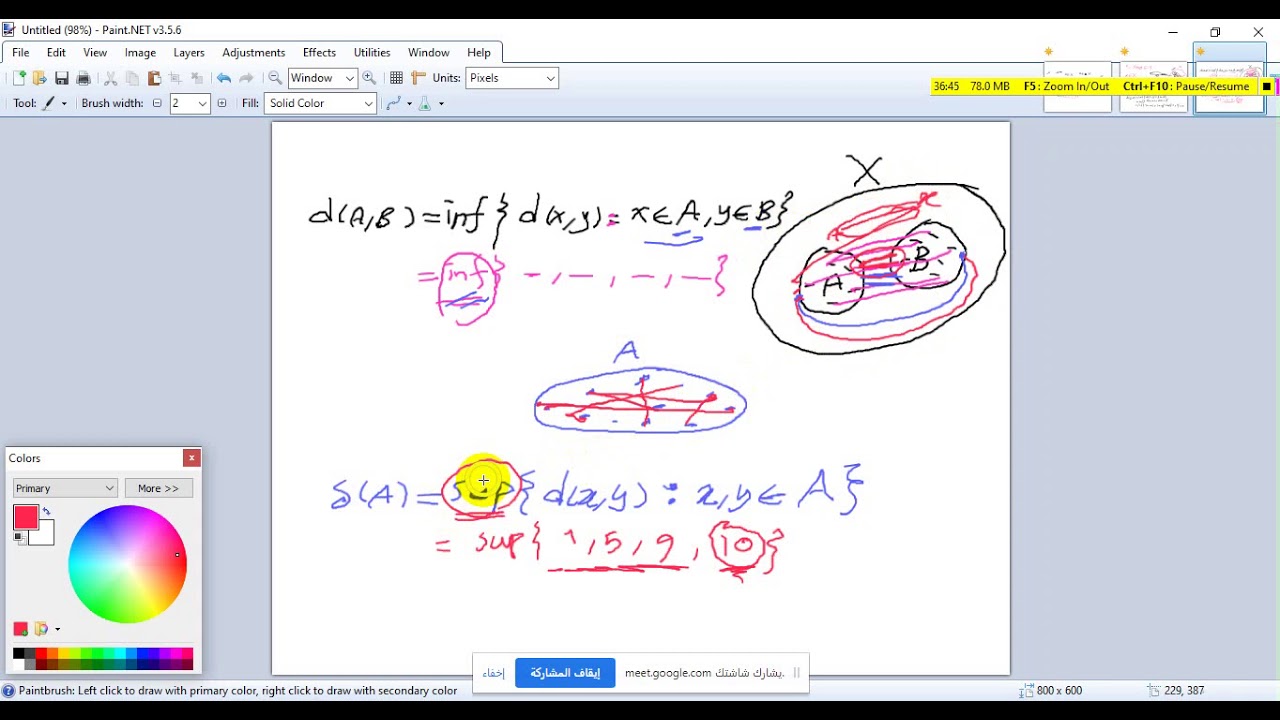 Untitled (98%) - Paint.NET v3.5.6
File Edit View Image Layers Adjustments Effects Utilities Window Help
Window Units: Pixels
36:45 78.0 MB F5: Zoom In/Out Ctrl+F10: Pause/Resume
Tool: Brush width: 2 Fill: Solid Color
X
d(A,B) = inf{ d(x,y) : x ∈ A, y ∈ B}
A B
= inf{ -, -, -, -}
A
δ(A) = sup{ d(x,y) : x,y ∈ A}
= sup{ 1, 5, 9, 10}
Colors
Primary More >>
meet.google.com يشارك شاشتك. إيقاف المشاركة إخفاء
Paintbrush: Left click to draw with primary color, right click to draw with secondary color 800 x 600 229, 387